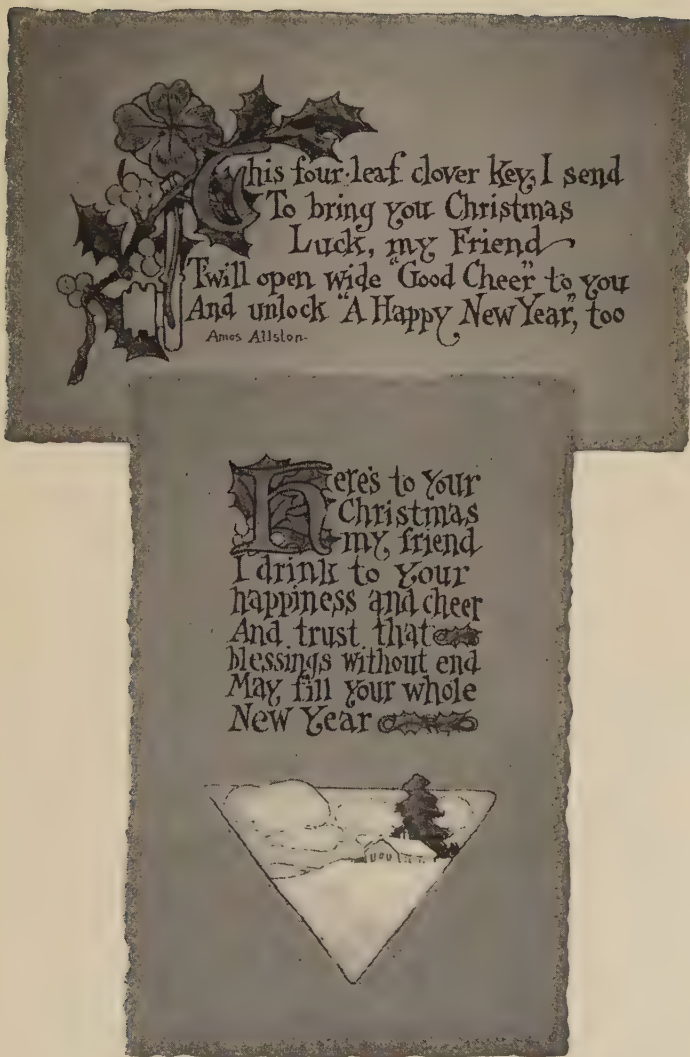 This four-leaf clover key, I send
To bring you Christmas
Luck, my Friend
Twill open wide "Good Cheer" to you
And unlock "A Happy New Year", too
Amos Allston-
Here's to Your
Christmas
my, friend
I drink to Your
happiness and cheer
And trust that
blessings without end
May fill your whole
New Year